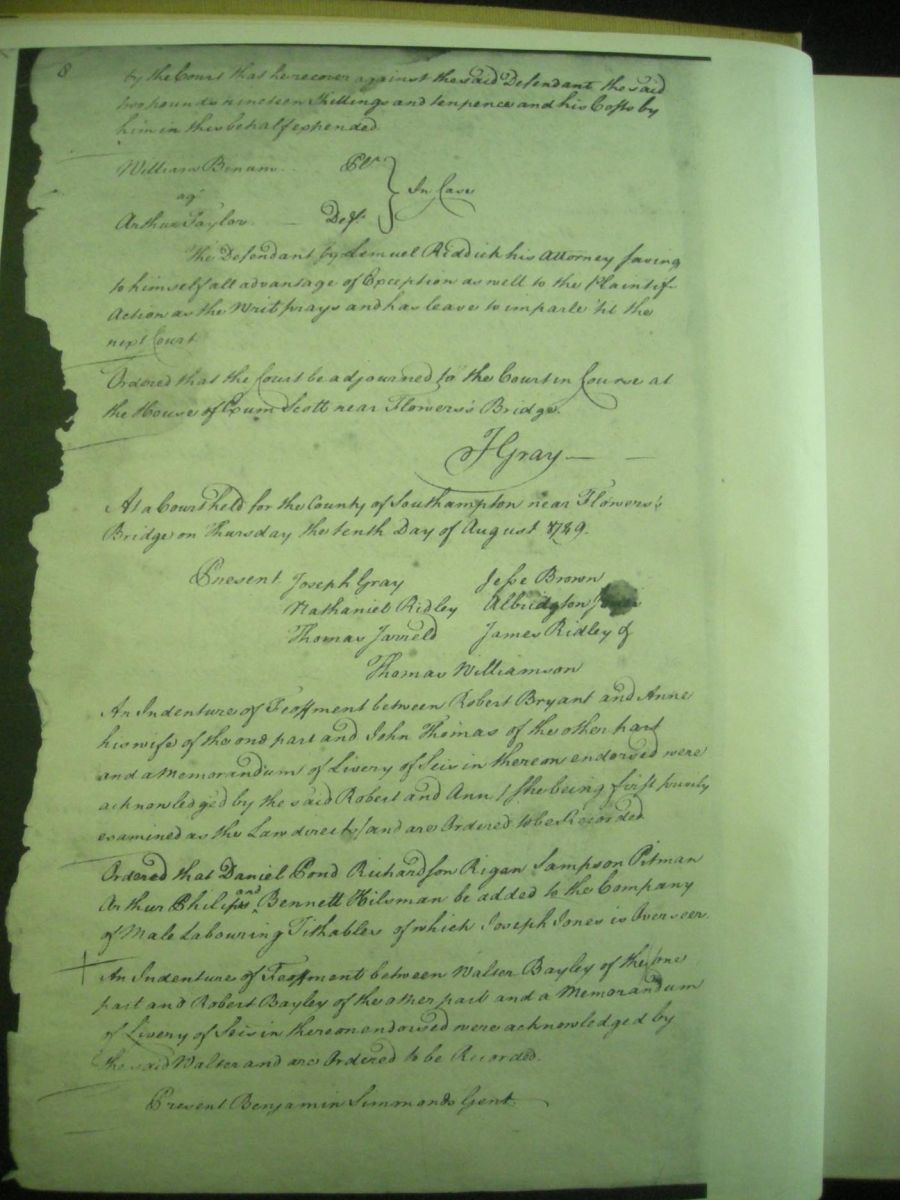 8
by the Court that he recover against the said Defendant the said
two pounds nineteen Shillings and tenpence and his Costs by
him in this behalf expended
William Bynum Plt.
agt
Arthur Taylor Deft. } In Case
The Defendant by Lemuel Riddick his Attorney saving
to himself all advantage of Exception as well to the Plaintif
Action as the Writ prays and has leave to imparle 'til the
next Court
Ordered that the Court be adjourned to the Court in Course at
the House of Exum Scott near Flowers's Bridge.
J Gray
At a Court held for the County of Southampton near Flowers's
Bridge on Thursday the tenth Day of August 1749.
Present Joseph Gray Jesse Brown
Nathaniel Ridley Albridgton Jones
Thomas Jarreld James Ridley &
Thomas Williamson
An Indenture of Feoffment between Robert Bryant and Anne
his wife of the one part and John Thomas of the other part
and a Memorandum of Livery of Seisin thereon endorsed were
acknowledged by the said Robert and Ann / she being first privily
examined as the Law directs / and are Ordered to be Recorded
Ordered that Daniel Pond Richardson Rigan Sampson Pitman
Arthur Philips and Bennett Hilsman be added to the Company
of Male Labouring Tithables of which Joseph Jones is Overseer
An Indenture of Feoffment between Walter Bayley of the one
part and Robert Bayley of the other part and a Memorandum
of Livery of Seisin thereon endorsed were acknowledged by
the said Walter and are Ordered to be Recorded.
Present Benjamin Simmonds Gent.